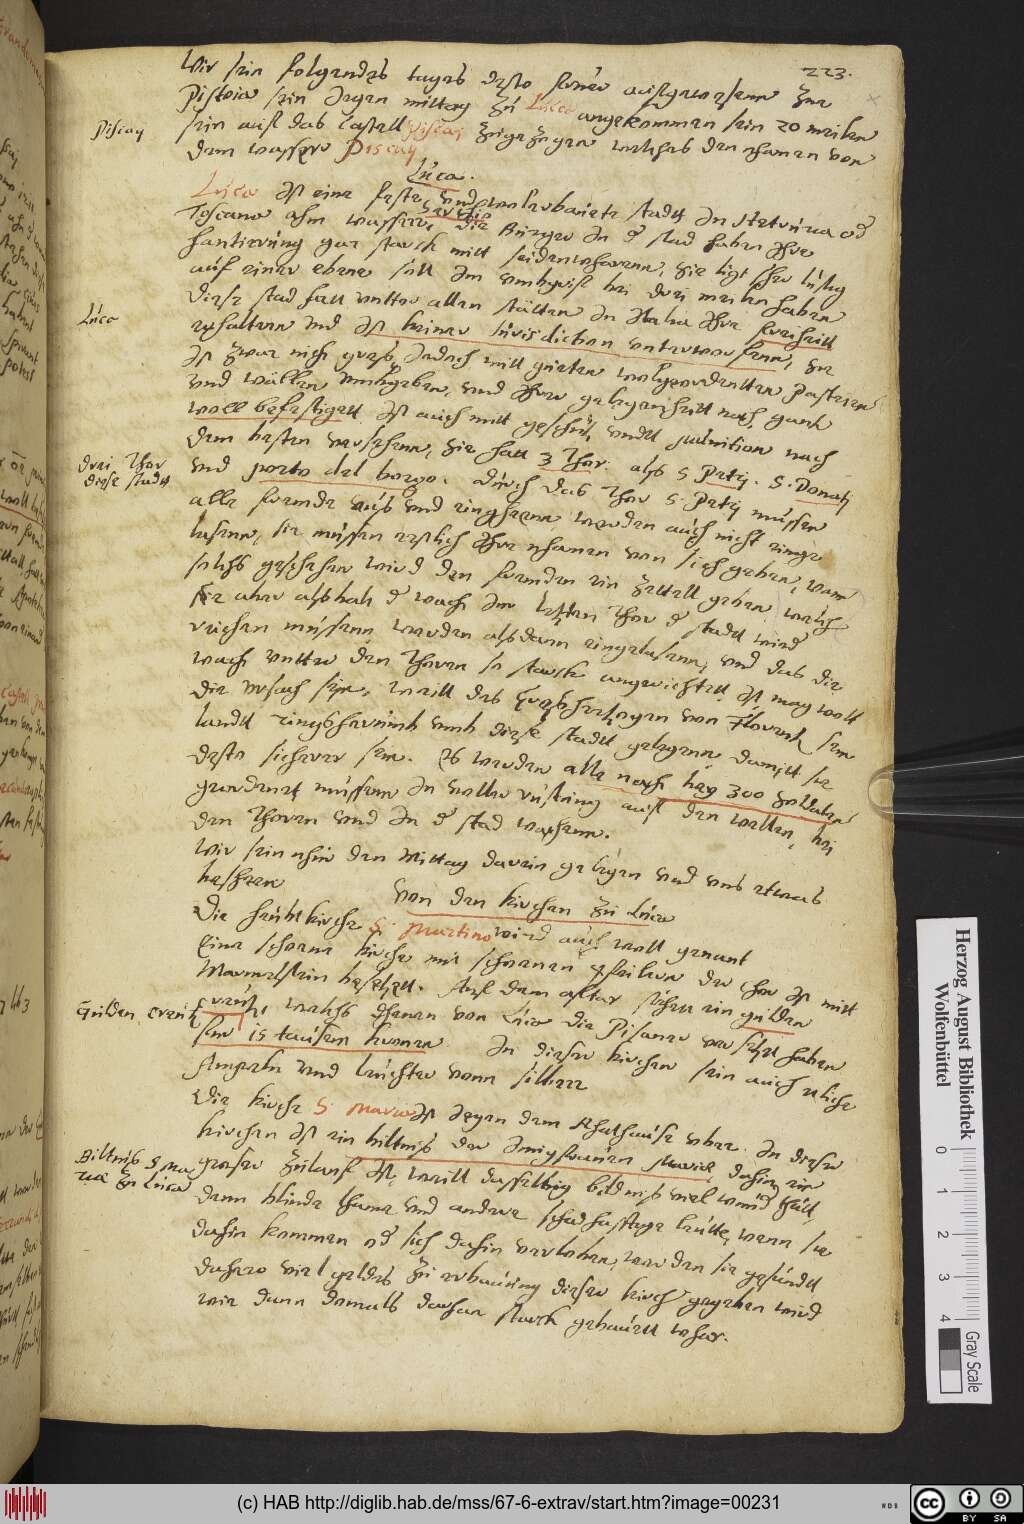 223.
Wir sein folgendes tages desto fruer aufgewesenn zue
Pistoia sein gegen mittag zu Luca angekommen sein 20 meilen
Piscay
sein auf das Castell Piscai zugezogen welches den nhamen von
dem wasser Piscay
Luca.
Luca ist eine feste, und wolerbauete stadt in Hetruria od
Toscana ahm wasser Serchio die Burger in d stad haben ihre
hantierung gar starck mitt seidenwharenn, sie ligt sehr lustig
auf einer ebene hatt im umbgreif bei drei meilen haben
Luca
diese stad hatt unter allen stätten in Italia ihre freiheitt
erhaltenn und ist keiner Jurisdiction unterworfenn, sie
ist zwar nich gross, jedoch mitt gueten wolgeordentten pasteien
und wällen umbgeben, und ihrer gelegenheitt nach, gantz
woll befestigett ist auch mitt geschütz unndt munition nach
dem besten versehenn, sie hatt 3 Thor. alss S Petri. S. Donati
Drei Thor
diese stadtt
und porto del borgo. durch das Thor S. Petri müssen
alle frembde aus und eingheenn werden auch nicht einge
lassenn, sie müssen erstlich ihre nhamen von sich geben, wan
solchs geschehen wird den frembden ein zettell geben welche
sie aber alssbalt d wach im letzten Thor d stadt wird
reichen müssenn werden alssdann eingelasenn, und das die
wach unter den Thoren so starck angerichtett ist mag woll
die ursach sein, weill das Grossherzogen von Florentz sein
landt ringsherumb umb diese stadtt gelegenn damitt sie
desto sicherer sein. Es werden alle nacht bey 300 soldaten
geordenet müssenn in voller rüstung auf den wellen, bei
den Thoren und in d stad wachenn.
Wir sein nhur den Mittag darein gelegen und uns etwas
besehenn
Von den Kirchen zu Luca
Die haubtkirche S. Martino wird auch woll genant
Eine schoene kirche mit schoenen pfeilern der Chor ist mitt
Marmelstein besetzett. Auf dem altar stehet ein gulden
Gulden creutz
creutz, welchs ihnen von Luca die Pisaner versetzt haben
fur 15 tausent kronen. In dieser kirchen sein auch etliche
Ampeln und leuchter vonn silberr
Die kirche S. Maria ist gegen dem Rhathause uber. In dieser
kirchen ist ein biltniss der Jungfrauen Maria, dahin ein
Biltniss S Ma
ria zu Luca
grosser zulauf ist, weill dasselbig bildniss viel wund thutt,
dann blinde lhame und andere schadhafftige leutte, wenn sie
dahin kommen od sich dahin verloben, werden sie gesundtt
dahero viel geldes zu erbauung dieser kirch gegeben wird
wie dann domals daran starck gebauett whar.
Herzog August Bibliothek
Wolfenbüttel
0 1 2 3 4
Gray Scale
(c) HAB http://diglib.hab.de/mss/67-6-extrav/start.htm?image=00231
WDB
CC BY SA